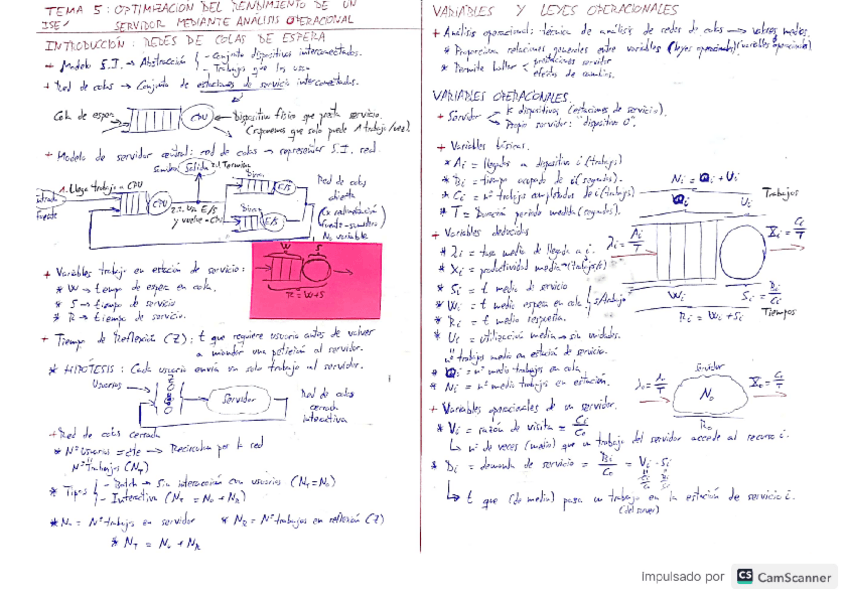 TEMA 5: OPTIMIZACIÓN DEL RENDIMIENTO DE UN
ISE SERVIDOR MEDIANTE ANÁLISIS OPERACIONAL
INTRODUCCIÓN: REDES DE COLAS DE ESPERA
+ Modelo S.I. → Abstracción { - Conjunto dispositivos interconectados.
- Trabajos que los usan
+ Red de colas → Conjunto de estaciones de servicio interconectadas.
Cola de espera
CPU
Dispositivo físico que presta servicio.
(Suponemos que solo puede 1 trabajo/vez)
+ Modelo de servidor central: red de colas → representar S.I. real
Salida
2.1. Termina
1. Llega trabajo a CPU
CPU
2.2. Va E/S
y vuelve
E/S
E/S
Red de colas
abierta
Nº variable
+ Variables trabajo en estación de servicio:
* W → tiempo de espera en cola.
* S → tiempo de servicio
* R → tiempo de servicio.
W S
R = W+S
+ Tiempo de Reflexión (Z): t que requiere usuario antes de volver
a mandar una petición al servidor.
* HIPÓTESIS: Cada usuario envía un solo trabajo al servidor.
Usuarios
Servidor
Red de colas
cerrada
interactiva
+ Red de colas cerrada
* Nº Usuarios = cte → Recircula por la red
Nº Trabajos (NT)
* Tipos { - Batch → Sin interacción con usuarios (NT = N0)
- Interactiva (NT = N0 + NR)
* N0 = Nº trabajos en servidor * NR = Nº trabajos en reflexión (Z)
* NT = N0 + NR
VARIABLES Y LEYES OPERACIONALES
+ Análisis operacional: técnica de análisis de redes de colas → valores medios
* Proporciona relaciones generales entre variables (leyes operacionales) (variables operacionales)
* Permite hallar < prestaciones servidor
efectos de cambios.
VARIABLES OPERACIONALES
+ Servidor < K dispositivos (estaciones de servicio).
Propio servidor: "dispositivo 0".
+ Variables básicas.
* Ai = llegadas a dispositivo i (trabajos)
* Bi = tiempo ocupado de i (segundos).
* Ci = nº trabajos completados de i (trabajos)
* T = Duración periodo medida (segundos).
+ Variables deducidas
* λi = tasa media de llegada a i.
* Xi = productividad media (trabajos/s)
* Si = t medio de servicio
* Wi = t medio espera en cola } s/trabajo
* Ri = t medio respuesta.
* Ui = utilización media → sin unidades.
nº trabajos medio en estación de servicio.
* Qi = nº medio trabajos en cola
* Ni = nº medio trabajos en estación.
Ni = Qi + Ui
Qi Ui
Trabajos
λi = Ai/T
Xi = Ci/T
Wi
Si = Bi/Ci
Ri = Wi + Si
Tiempos
+ Variables operacionales de un servidor.
* Vi = razón de visita = Ci/C0
↳ nº de veces (medio) que un trabajo del servidor accede al recurso i.
* Di = demanda de servicio = Bi/C0 = Vi · Si
↳ t que (de media) pasa un trabajo en la estación de servicio i.
(del server)
Servidor
λ0 = A0/T
N0
X0 = C0/T
R0
Impulsado por CS CamScanner